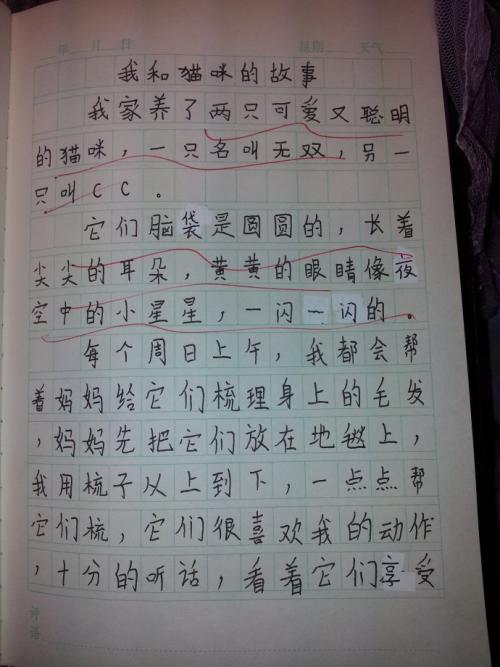 年 月 日 星期 天气
我和猫咪的故事
我家养了两只可爱又聪明
的猫咪，一只名叫无双，另一
只叫CC。
它们脑袋是圆圆的，长着
尖尖的耳朵，黄黄的眼睛像夜
空中的小星星，一闪一闪的。
每个周日上午，我都会帮
着妈妈给它们梳理身上的毛发
，妈妈先把它们放在地毯上，
我用梳子从上到下，一点点帮
它们梳，它们很喜欢我的动作
，十分的听话，看着它们享受
评语